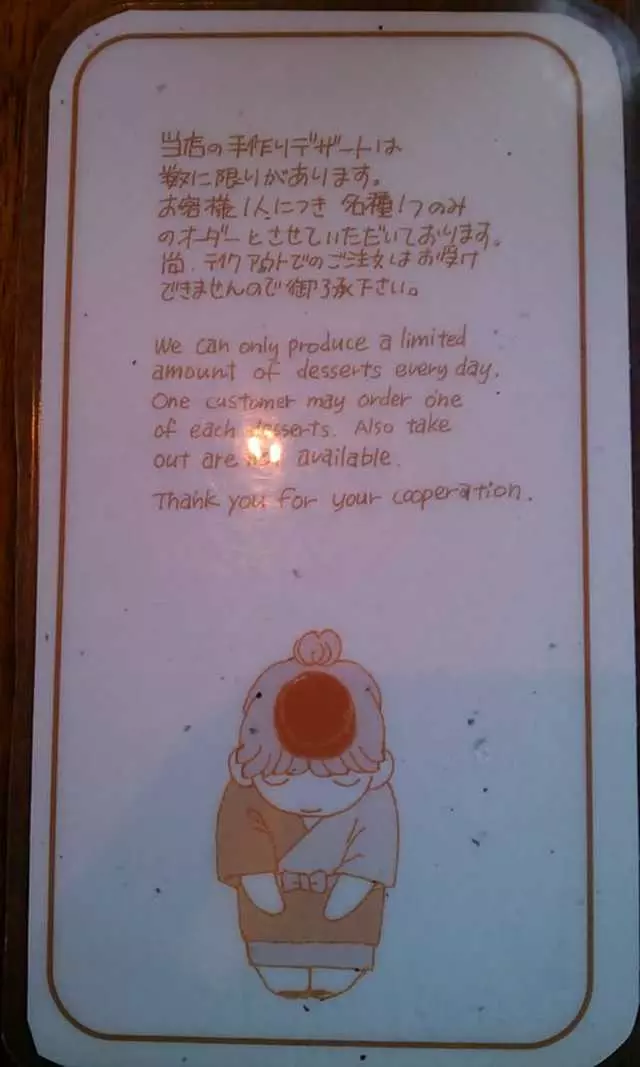 当店の手作りデザートは
数に限りがあります。
お客様1人につき 各種1つのみ
のオーダーとさせていただいております。
尚、テイクアウトでのご注文はお受け
できませんので御了承下さい。
We can only produce a limited
amount of desserts every day.
One customer may order one
of each desserts. Also take
out are not available.
Thank you for your cooperation.